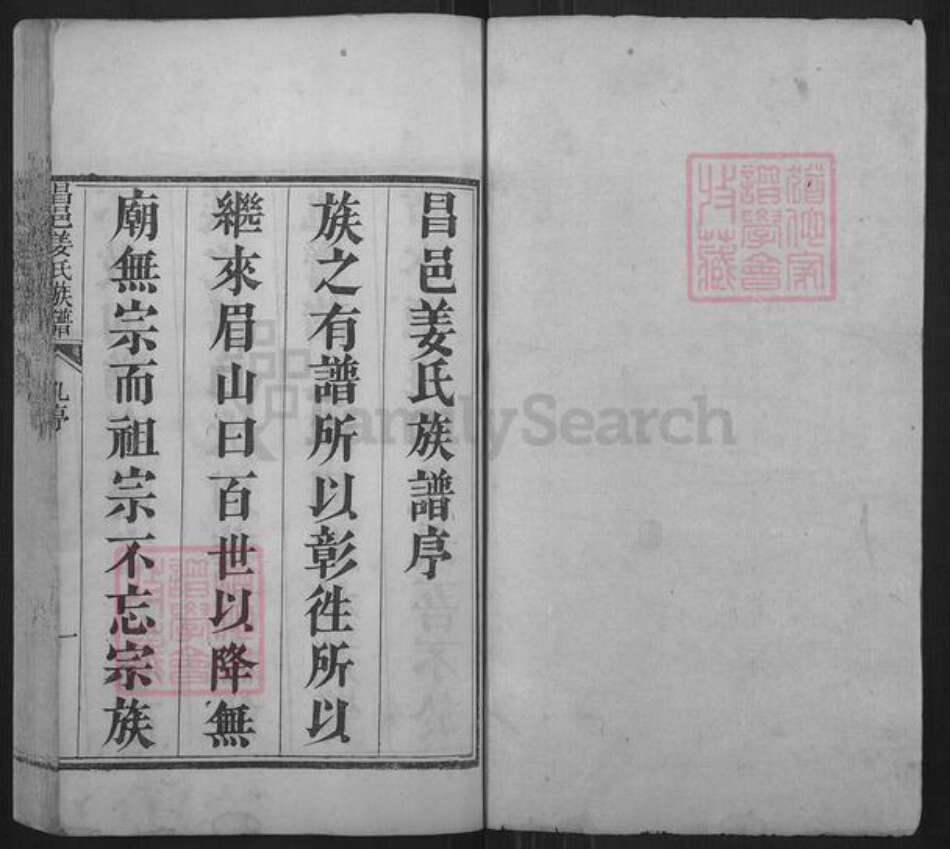 昌邑姜氏族譜序
族之有譜所以彰徃所以
繼來眉山曰百世以降無
廟無宗而祖宗不忘宗族
昌邑姜氏族譜
序
一
譜學會
收藏
FamilySearch